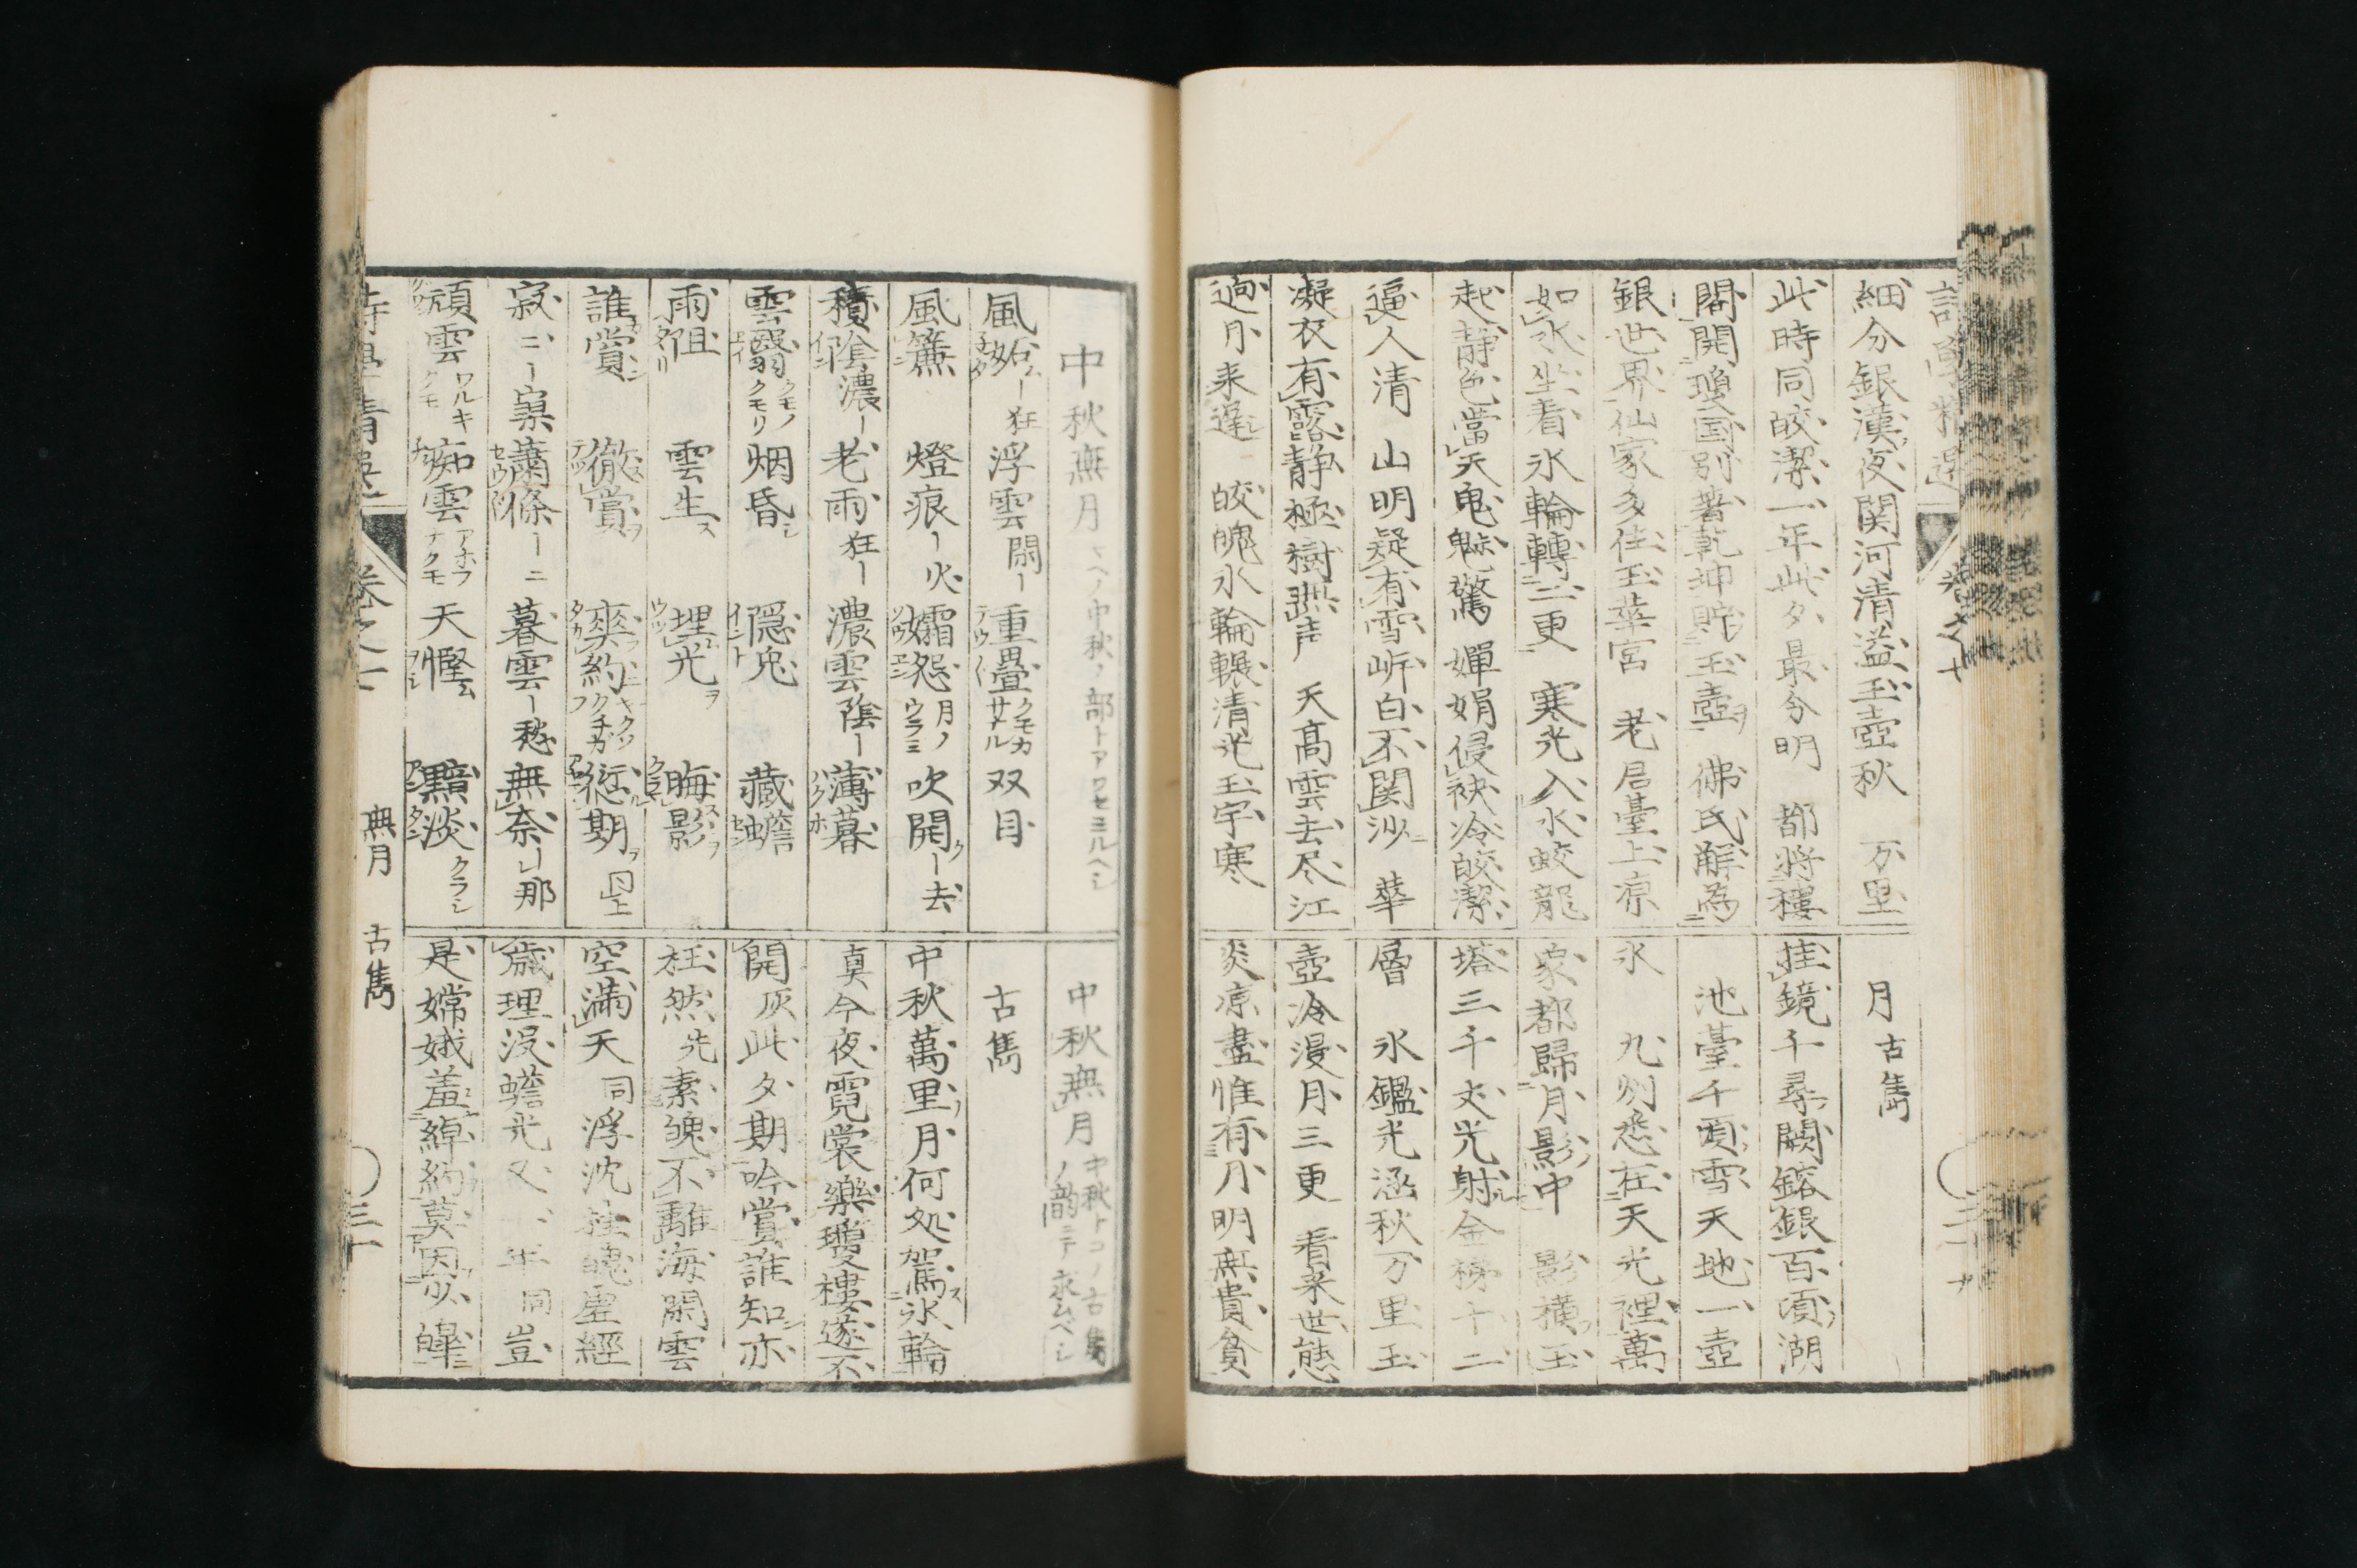 細分銀漢夜関河清溢玉壺秋 万里
此時同皎潔一年此夕最分明 都将樓
閣開瓊国別著乾坤貯玉壺 佛氏解為
銀世界仙家多住玉華宮 老居臺上凉
如水坐看氷輪轉二更 寒光入水蛟龍
起静色當天鬼魅驚 嬋娟侵袂冷皎潔
逼人清 山明疑有雪岸白不関沙 華
凝衣有露静極樹無声 天高雲去尽江
迥月来遅 皎魄氷輪輾清光玉宇寒
月古雋
挂鏡千尋闕鎔銀百頃湖
池臺千頃雪天地一壺
氷 九州悉在天光裡萬
象都歸月影中 影横玉
塔三千丈光射金梯十二
層 氷鑑光涵秋万里玉
壺冷漫月三更 看来世態
炎凉盡惟有月明無貴貧
中秋無月
風妬ー狂 浮雲閑ー 重畳 クモカサナル 双目
風簾 燈痕ー火 孀怨 月ノウラミ 吹開ー去
積陰濃ー 老雨狂ー 濃雲陰ー 薄暮
雲翳 クモノクモリ 烟昏 隠兎 藏蟾
雨阻 雲生 埋光 晦影
誰賞 徹賞 爽約 愆期 同上
寂ーー寞 蕭條ー 暮雲ー愁 無奈ー那
頑雲 ワルキクモ 痴雲 アホフナクモ 天慳 黯淡 クラシ
中秋無月 中秋トコノ古雋ノ韵ニテ求ムベシ
古雋
中秋萬里月何処駕氷輪
真今夜霓裳樂瓊樓遂不
開 灰此夕期吟賞誰知亦
枉然 先素魄不離海閑雲
空満天 同浮沈桂魄虚經
歳理没蟾光又一年 同豈
是嫦娥羞綽約莫因
無月 古雋